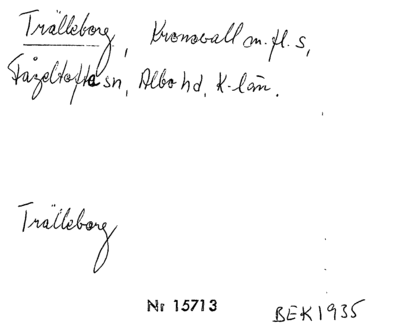 Trälleborg, Kronovall m.fl.s,
Fågeltofta sn, Albo hd, K-län.
Trälleborg
Nr 15713 BEK 1935